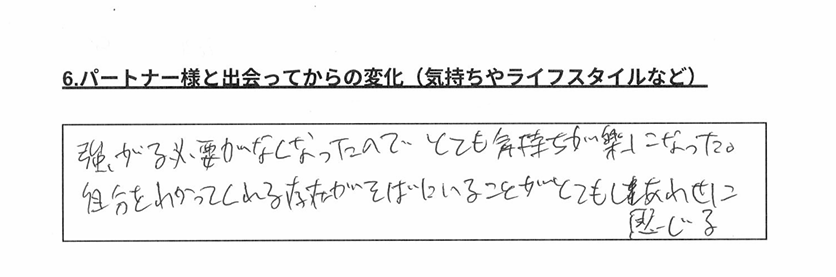 6.パートナー様と出会ってからの変化（気持ちやライフスタイルなど）
強がる必要がなくなったので とても気持ちが楽になった。
自分をわかってくれる存在がそばにいることがとてもしあわせに
感じる